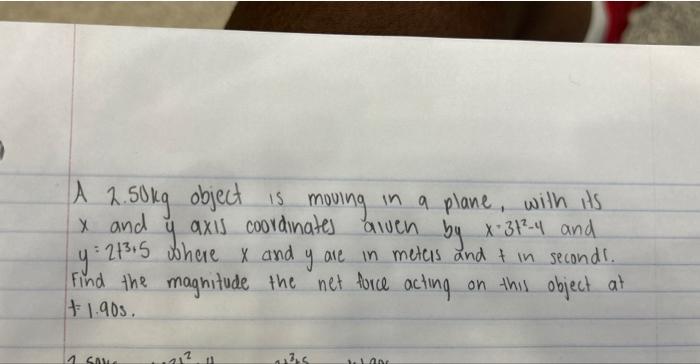 A 2.50kg object is moving in a plane, with its
x and y axis coordinates given by x=3t²-4 and
y=2t³+5 where x and y are in meters and t in seconds.
Find the magnitude the net force acting on this object at
t=1.90s.